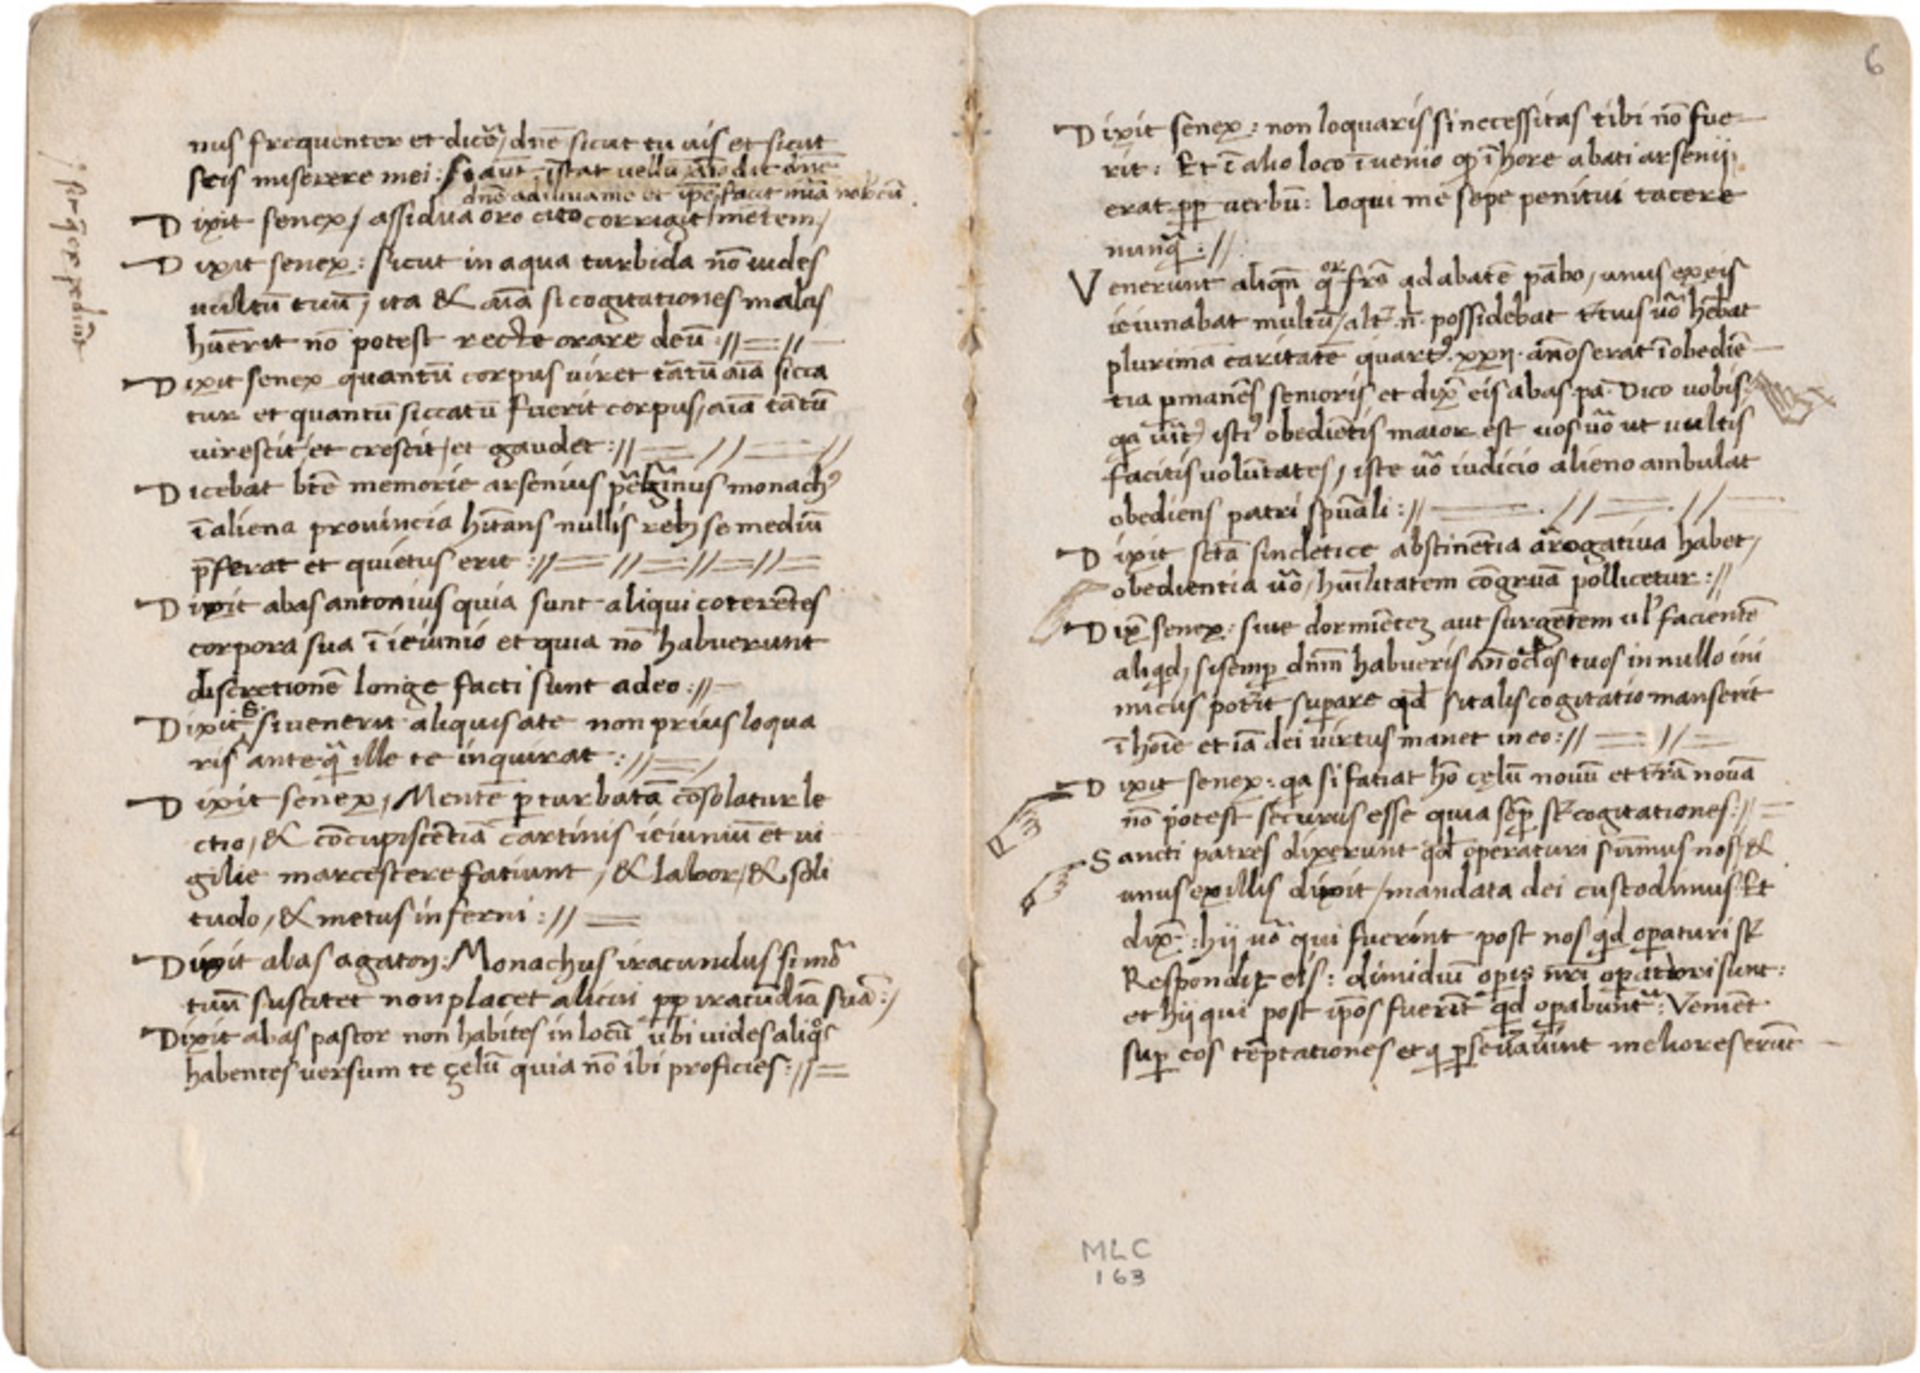 nus frequenter et dicē, dnē sicut tu uis et sicut
scis miserere mei: si aūt īstat bellū
dnē adiuuame et ip̄e facit
Dixit senex, assidua oro cito corrigit mētem,
Dixit senex: sicut in aqua turbida nō uides
uultū tuū, ita & aīa si cogitationes malas
huērit nō potest recte orare deū://=//
Dixit senex quantū corpus uiret tātū aīa sicca
tur et quantū siccatū fuerit corpus, aīa tātū
uirescit, et crescit, et gaudet://
Dicebat btē memorie arsenius monachꝰ
ī aliena prouincia hītans nullis rebꝫ se mediū
p̄ferat et quietus erit://
Dixit abas antonius quia sunt aliqui coterētes
corpora sua ī ieiunio et quia nō habuerunt
discretionē longe facti sunt a deo://
Dixit S. si uenerit aliquis a te non prius loqua
ris anteq̄ ille te inquirat://
Dixit senex, Mentē perturbatā cōsolatur le
ctio, & cōcupiscētiā carnis ieiuniū et ui
gilie marcescere fatiunt, & labor, & soli
tudo, & metus inferni://
Dixit abas agaton: Monachus iracundus si mō
tuū suscitet non placet alicui pp̄ iracūdiā suā:/
Dixit abas pastor non habites in locū ubi uides aliqᵒs
habentes uersum te çelū quia nō ibi proficies://
6
Dixit senex: non loquaris si necessitas tibi nō fue
rit: Et ī alio loco īuenio ꝙ ī hore abati arsenij
erat pp̄ uerbū: loqui me sępe penitui tacere
nunq̄://
Venerunt aliqn̄ qᵒʳ fr̄s ad abatē pābo, unus ex eis
ieiunabat multū, alt̄ n̄ possidebat tr̄tius uō hēbat
plurimā caritatē quartꝰ xxij. annos erat ī obediē
tia pmanēs senioris et dix̄ eis abas pā. Dico uobis
qa uīt istiꝰ obediētis maior est uos uō ut uultis
facitis uolūtates, iste uō iudicio alieno ambulat
obediens patri spūali://
Dixit scta sincletice abstinētia arrogatiua habet,
obedientia uō, huīlitatem cōgruā pollicetur://
Dix̄ senex: siue dormiētez aut surgētem ul' facientē
aliqid, si semp dnm̄ habueris an̄ ocl'os tuos in nullo ini
micus potīt supare qđ si talis cogitatio manserit
ī hoīe et iā dei uirtus manet in eo://
Dixit senex: qa si fatiat hō çelū nouū et trā nouā
nō potest securus esse quia sēp s̄t cogitationes://
Sancti patres dixerunt qđ operaturi sūmus nos, &
unus ex illis dixit, mandata dei custodimus. Et
dix̄: hij uō qui fuerint post nos qđ opaturi s̄t
Respondit eis: dimidiū opis nr̄i opaturi sunt:
et hij qui post ip̄os fuerīt qđ opabūnt: Veniēt
super eos tēptationes et q perseūauīnt meliores erūt
MLC
163